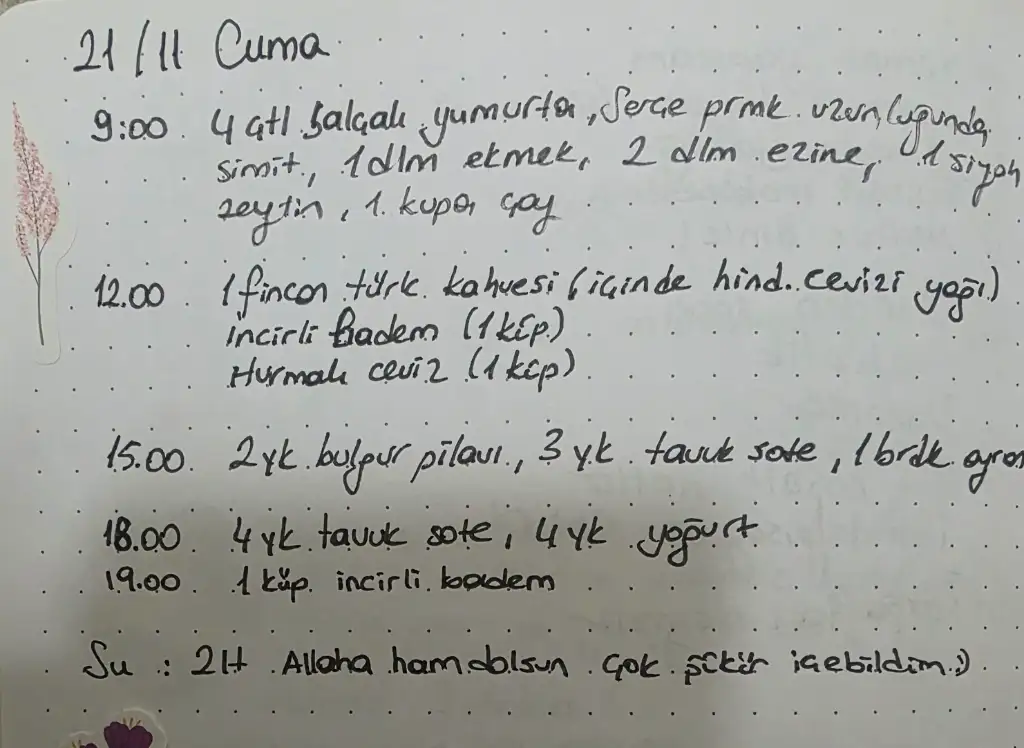 21/11 Cuma
9:00 4 çtl salçalı yumurta, Serçe prmk. uzunluğunda
simit, 1 dlm ekmek, 2 dlm ezine, 1 siyah
zeytin, 1 kupa çay
12.00 1 fincan türk kahvesi (içinde hind. cevizi yağı)
incirli Badem (1 küp)
Hurmalı ceviz (1 küp)
15.00 2 yk bulgur pilavı, 3 yk tavuk sote, 1 brdk ayran
18.00 4 yk tavuk sote, 4 yk yoğurt
19.00 1 küp incirli badem
Su : 2 lt Allaha hamdolsun çok şükür içebildim :)